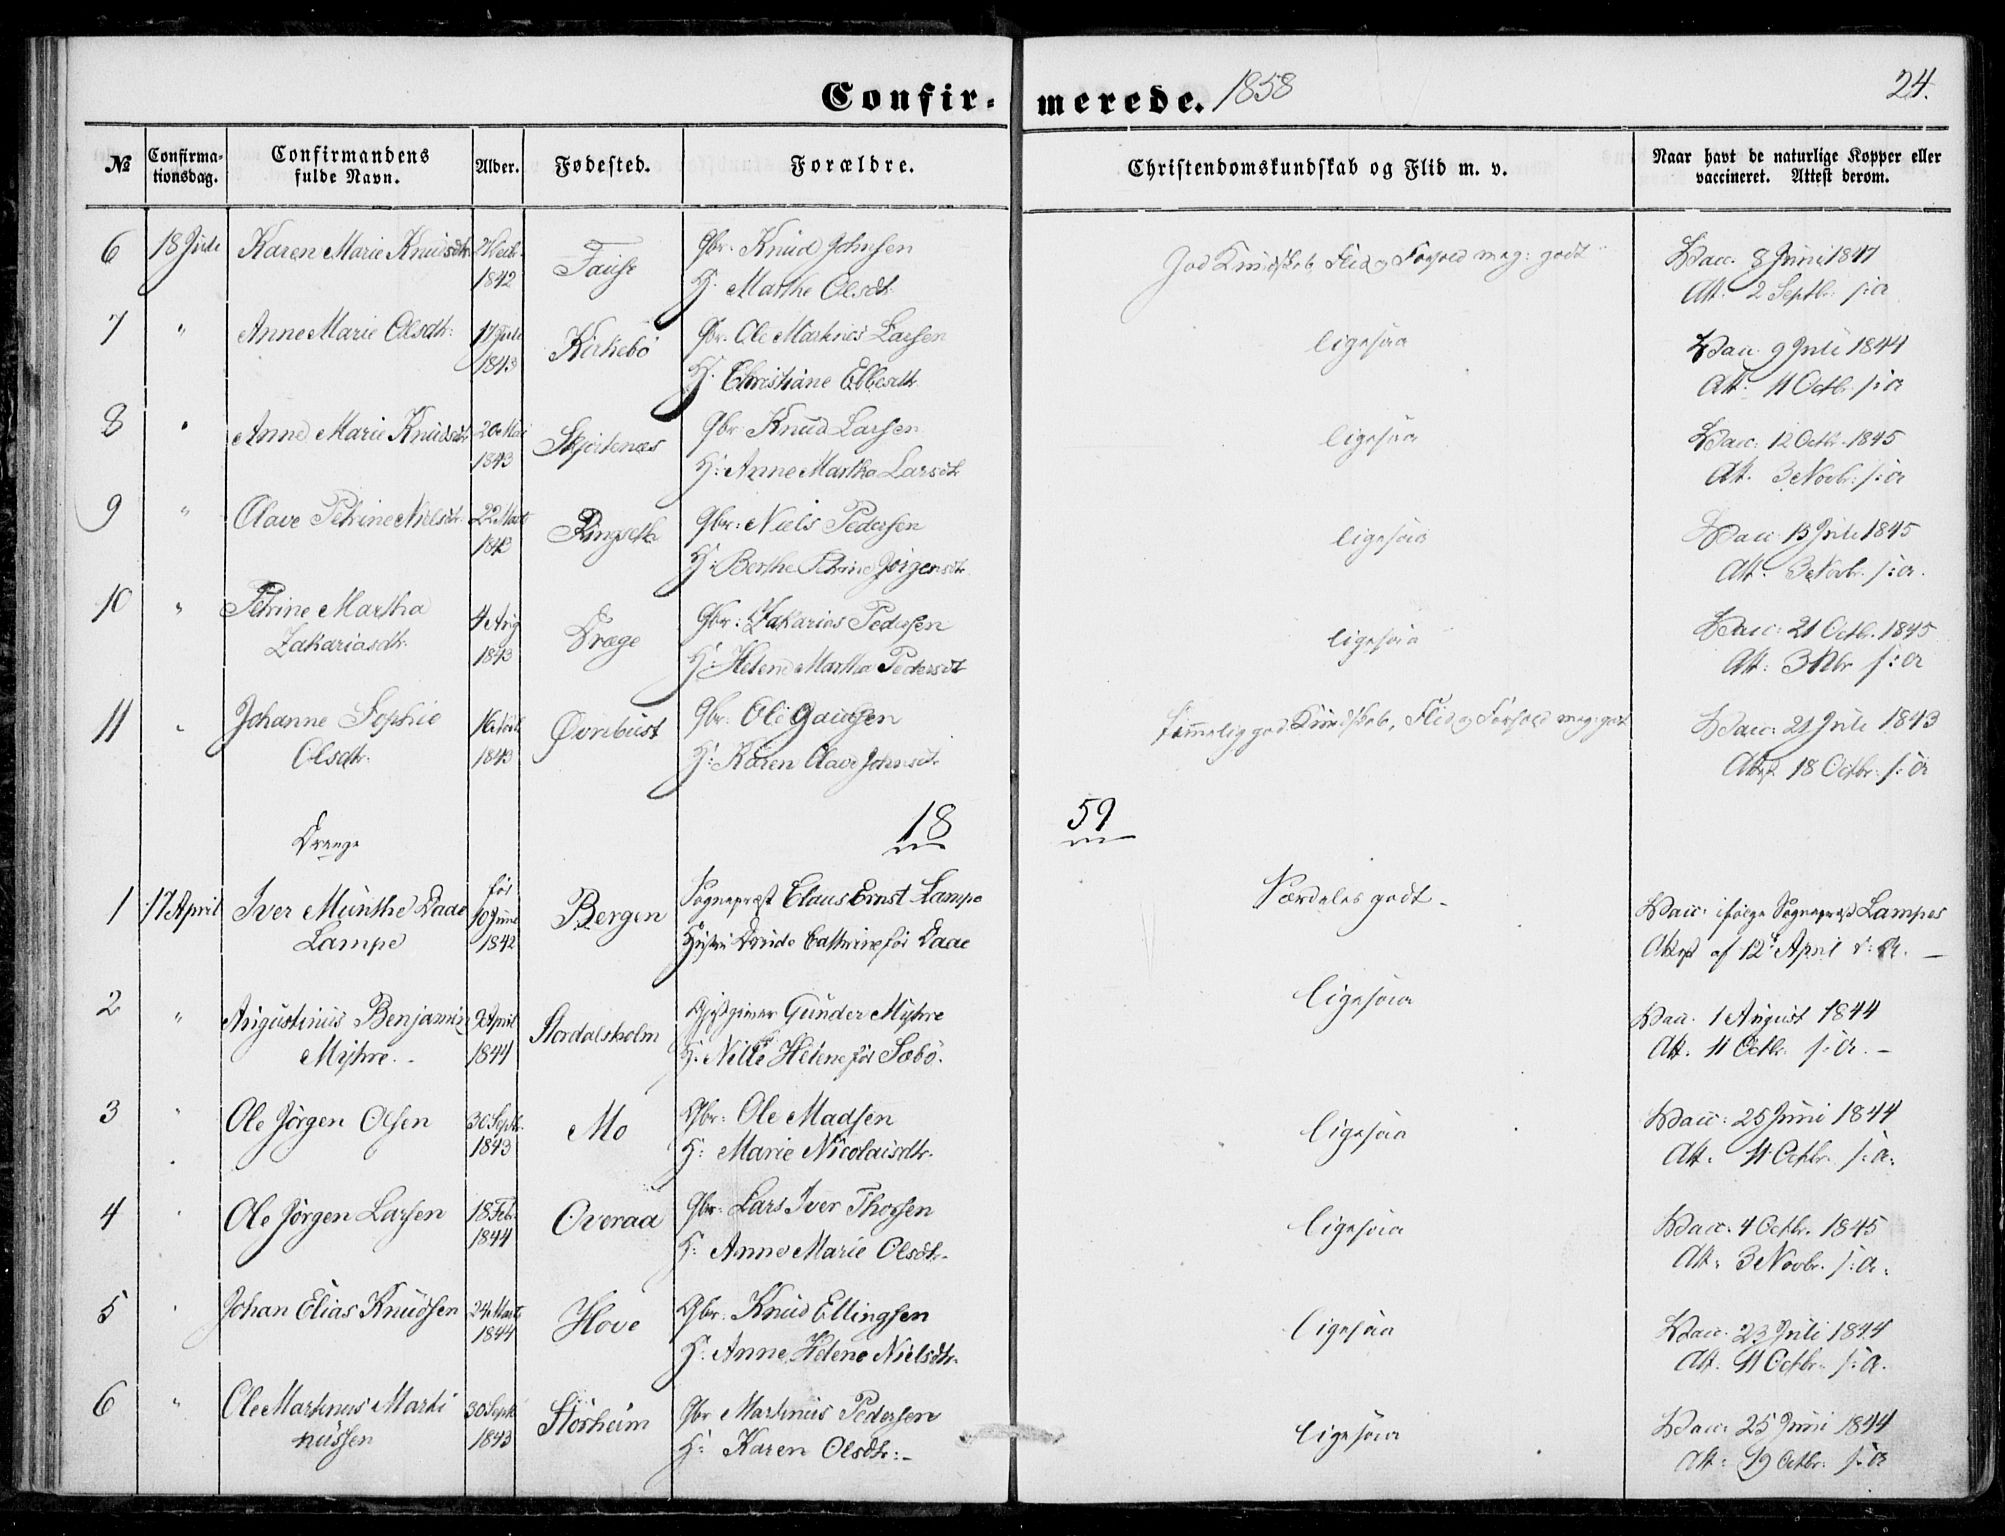 Confir- merede. 1858 24.
№ Confirma-tionsdag. Confirmandens fulde Navn. Alder. Fødested. Forældre. Christendomskundskab og Flid m. v. Naar havt de naturlige Kopper eller vaccineret. Attest derom.
6 18 Juli Karen Marie Knudsdtr 1842 Fause Gbr. Knud Johnsen God Kundskab, Flid og Forhold meg: godt Vacc. 8 Juni 1847
H. Marthe Olsdt. Att. 2 Septbr. s: a
7 " Anne Marie Olsdtr. 17 Juli 1843 Kirkebö Gbr. Ole Martinus Larsen ligesaa Vacc. 9 Juli 1844
H. Christiane Ellesdtr. Att. 11 Octb. s: a
8 " Anne Marie Knudsdtr 20 Mai 1843 Skjortenæs Gbr. Knud Larsen ligesaa Vacc. 12 Octb. 1845
H: Anne Martha Larsdt Att. 3 Novbr. s: a
9 " Olave Petrine Nielsdtr. 22 Mart 1843 Ringseth Gbr: Niels Pedersen ligesaa Vacc. 15 Juli 1845
H: Berthe Petrine Jörgensdtr Att. 3 Novbr. s: a.
10 " Petrine Martha Zakariasdtr. 4 Aug 1843 Drage Gbr: Zakarias Pedersen ligesaa Vacc: 21 Octb. 1845
H: Helene Martha Pedersdt Att: 3 Nbr s: a
11 " Johanne Sophie Olsdtr. 1843 Øvrebust Gbr: Ole Gausen Temmelig god Kundskab, Flid og Forhold meg: godt Vacc: 21 Juli 1843
H: Karen Olave Johnsdt. Attest 18 Octbr. s: a
Drenge 18 59
1 17 April Iver Munthe Daae Lampe før 10 Juni 1842 Bergen Sognepræst Claus Ernst Lampe Særdeles godt - Vacc: ifølge Sognepræst Lampes
Hustru Drude Cathrine før Daae Attest af 12te April d: A. -
2 " Augustinus Benjamin Myhre. - 9 April 1844 Stordalsholm Gjestgiver Gunder Myhre ligesaa Vacc. 1 August 1844
H. Nille Helene før Sæbö. Att. 11 Octbr. s: a. -
3 " Ole Jörgen Olsen 30 Septbr. 1843 Mo Gbr: Ole Madsen ligesaa Vacc: 25 Juni 1844
H: Marie Nicolaisdtr. Att. 11 Octbr. s: a.
4 " Ole Jörgen Larsen 18 Feb. 1844 Overaa Gbr: Lars Iver Thorsen ligesaa Vacc. 4 Octbr. 1845
H: Anne Marie Olsdtr. Att. 3 Novbr. s: a.
5 " Johan Elias Knudsen 24 Mart 1844 Hove Gbr. Knud Ellingsen ligesaa Vacc: 23 Juli 1844
H: Anne Helene Nielsdtr. Att. 11 Octbr. s: a.
6 " Ole Martinus Marti nussen 30 Septb 1843 Störheim Gbr Martinus Pedersen ligesaa Vacc: 25 Juni 1844
H: Karen Olsdtr:- Att: 19 Octbr. s: a